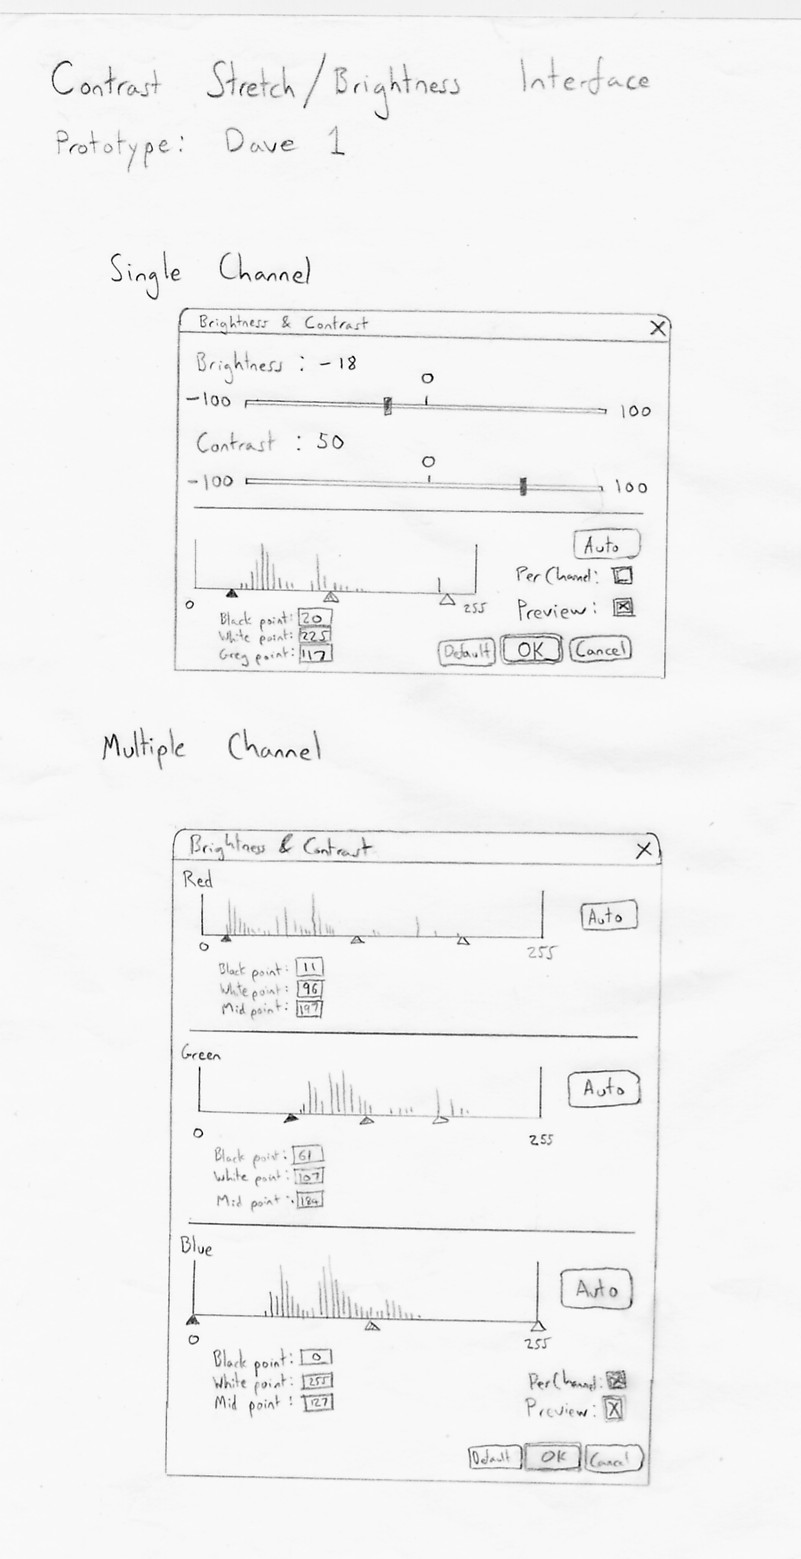 Contrast Stretch/Brightness Interface
Prototype: Dave 1
Single Channel
Brightness & Contrast X
Brightness : -18
0
-100 100
Contrast : 50
0
-100 100
Auto
Per Channel:
Preview:
0 255
Black point: 20
White point: 225
Grey point: 117
Default OK Cancel
Multiple Channel
Brightness & Contrast X
Red
Auto
0 255
Black point: 11
White point: 96
Mid point: 197
Green
Auto
0 255
Black point: 61
White point: 107
Mid point: 184
Blue
Auto
0 255
Black point: 0
White point: 255
Mid point: 127
Per Channel:
Preview: X
Default OK Cancel